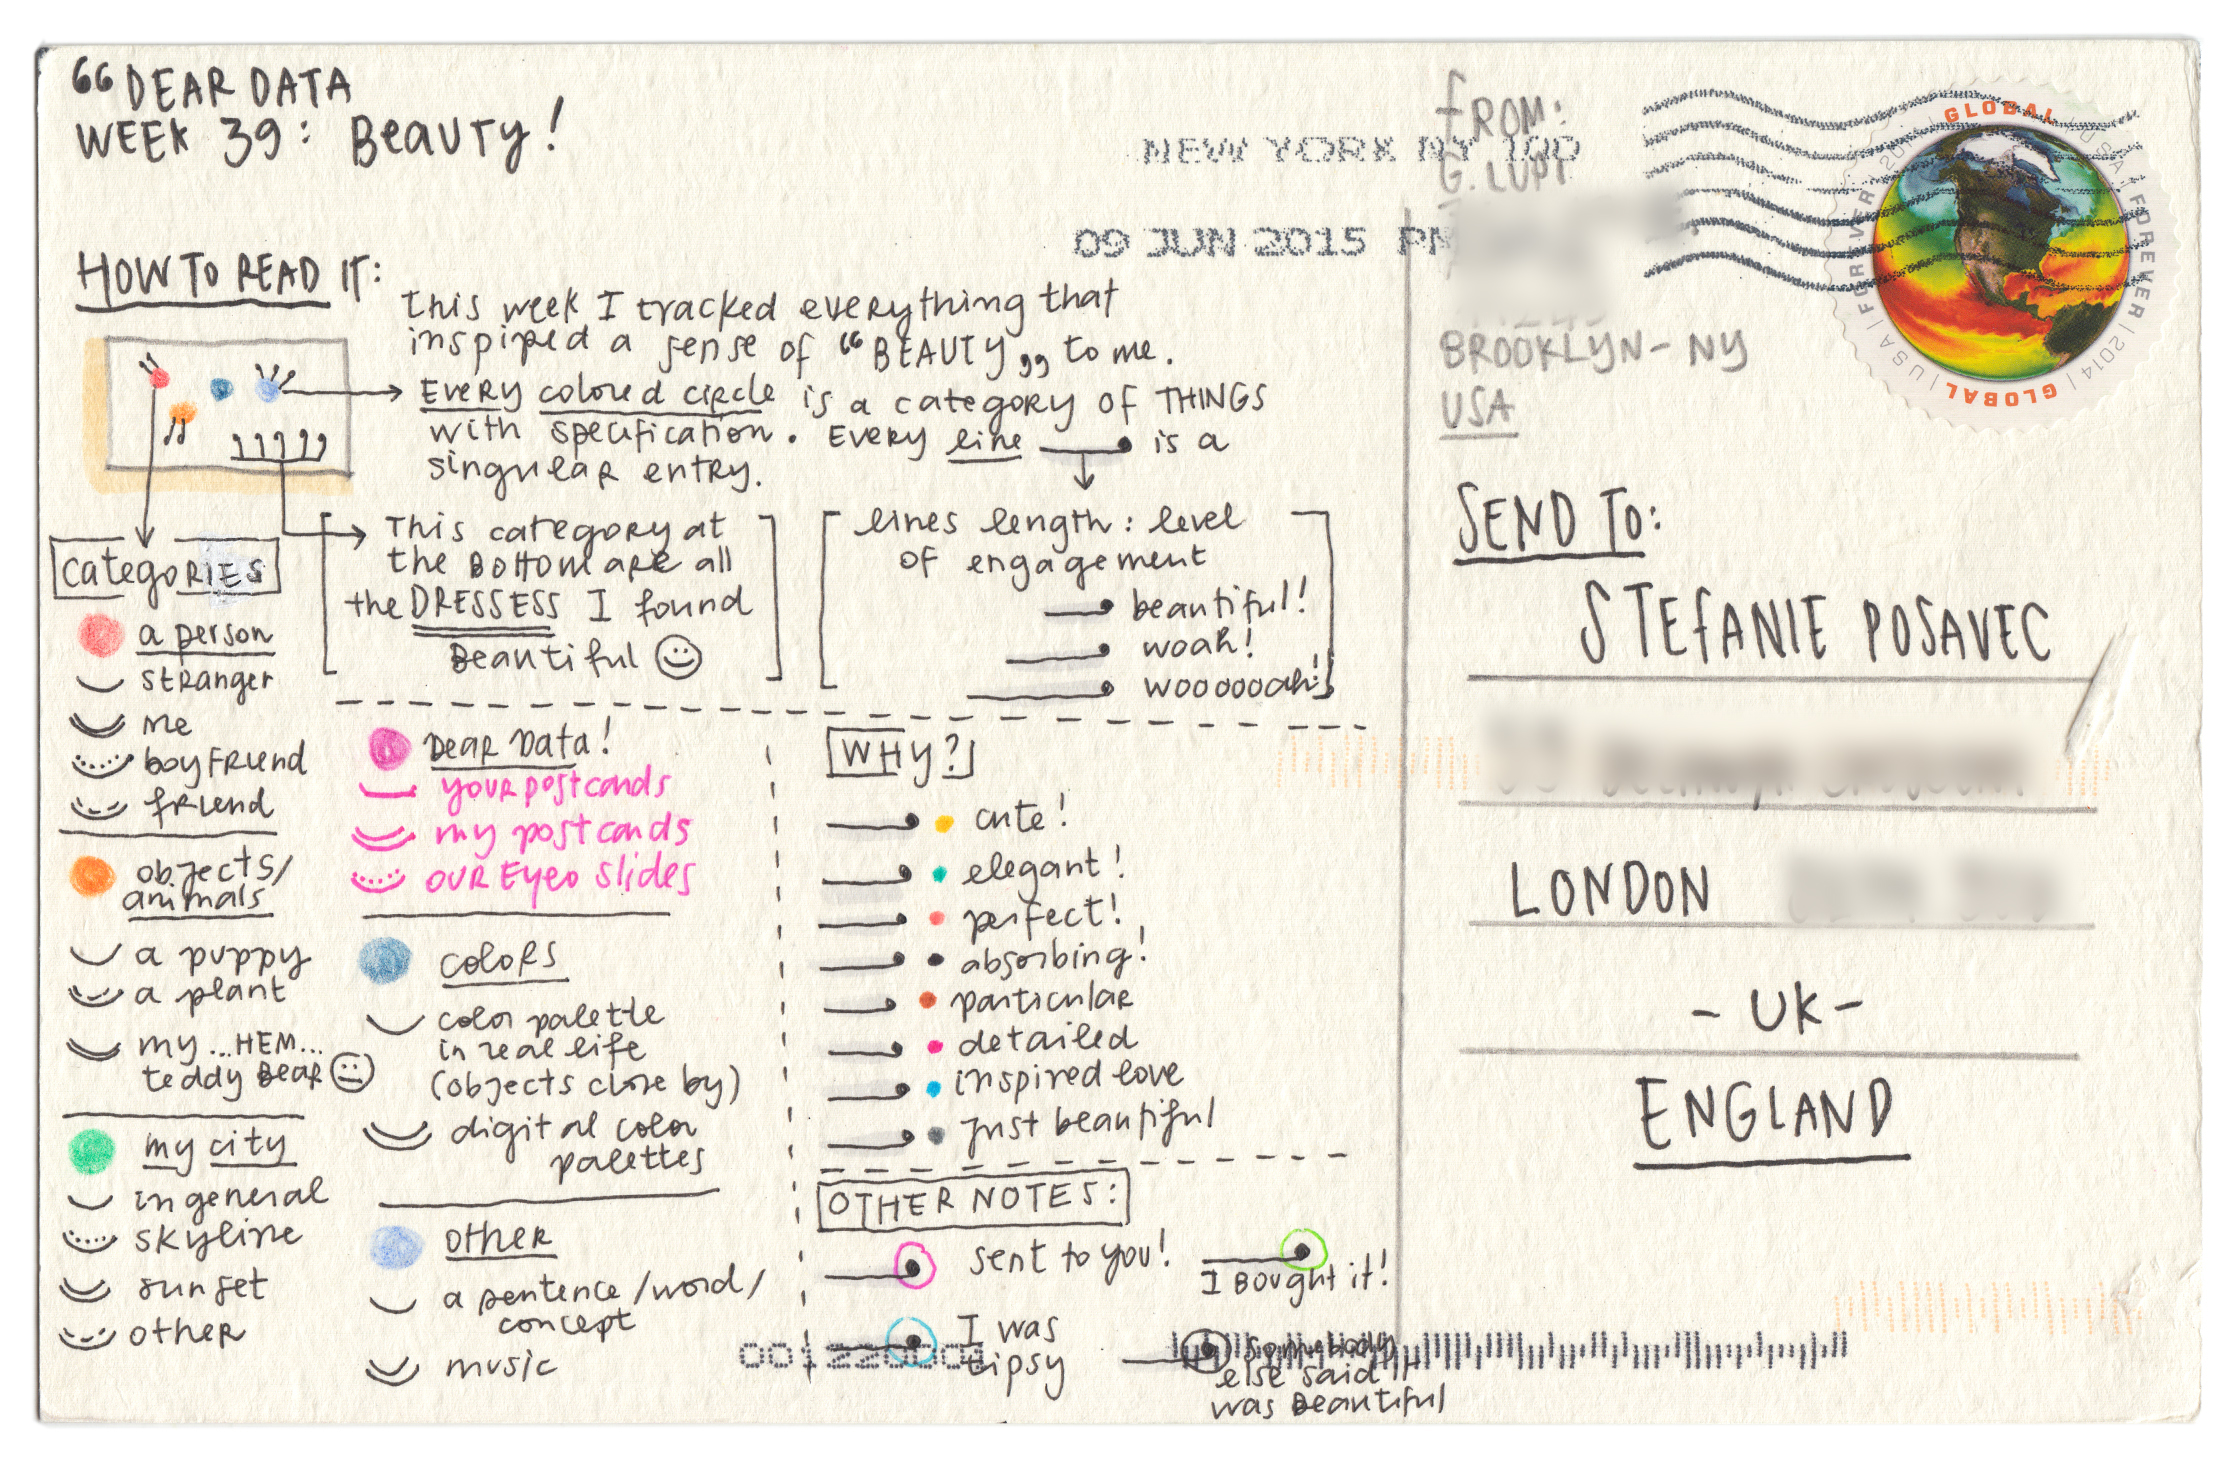 “DEAR DATA
WEEK 39: BEAUTY!
HOW TO READ IT:
this week I tracked everything that
inspired a sense of “BEAUTY„ to me.
EVERY colored circle is a category of THINGS
with specification. EVERY line is a
singular entry.
This category at
the BOTTOM are all
the DRESSESS I found
Beautiful
lines length: level
of engagement
beautiful!
woah!
woooooah!
categORIES
a person
stranger
me
boyfriend
friend
objects/
animals
a puppy
a plant
my ...HEM...
teddy BEAR
my city
in general
skyline
sunset
other
DEAR DATA!
your postcards
my postcards
OUR EYEO Slides
colors
color palette
in real life
(objects close by)
digital color
palettes
other
a sentence/word/
concept
music
WHY?
cute!
elegant!
perfect!
absorbing!
particular
detailed
inspired love
just beautiful
OTHER NOTES:
sent to you!
I BOUGHT it!
I was
tipsy
somebody
else said it
was BEAUTIFUL
NEW YORK NY 100
09 JUN 2015 PM
FROM:
G. LUPI
BROOKLYN - NY
USA
GLOBAL | USA | FOREVER | 2014 | GLOBAL | USA | FOREVER | 2014
SEND TO:
STEFANIE POSAVEC
LONDON
- UK -
ENGLAND